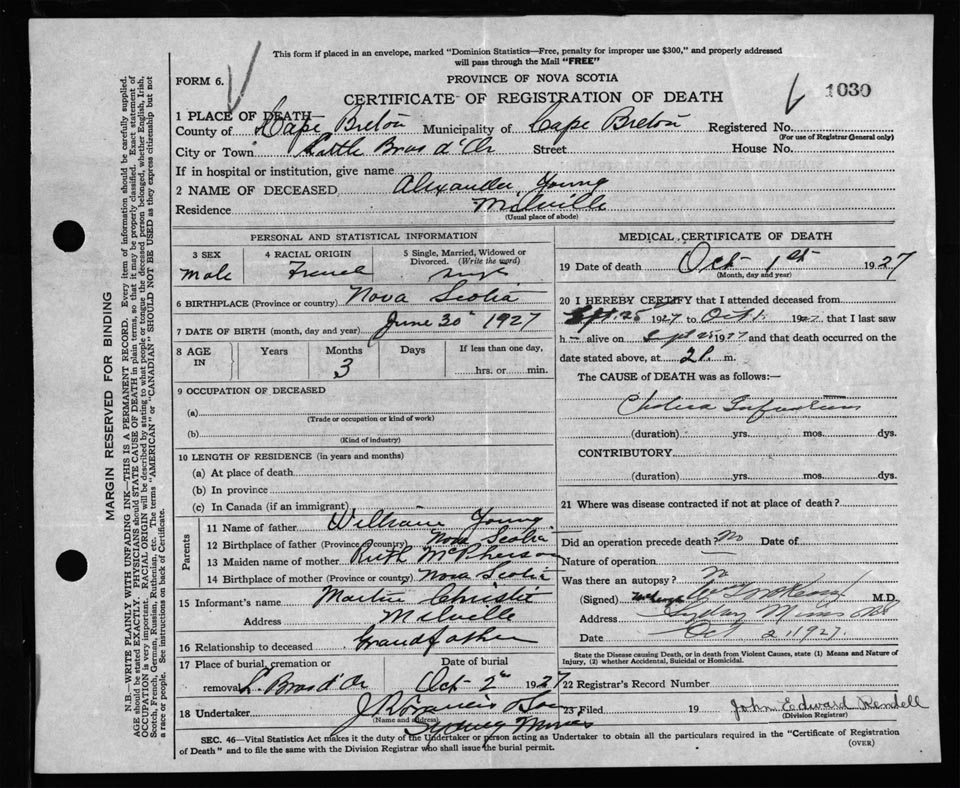 This form if placed in an envelope, marked "Dominion Statistics—Free, penalty for improper use $300," and properly addressed
will pass through the Mail "FREE"
FORM 6.
PROVINCE OF NOVA SCOTIA
CERTIFICATE OF REGISTRATION OF DEATH
1030
1 PLACE OF DEATH
County of Cape Breton Municipality of Cape Breton Registered No.
(For use of Registrar General only)
City or Town Little Bras d'Or Street House No.
If in hospital or institution, give name
2 NAME OF DECEASED Alexander Young
Residence Milville
(Usual place of abode)
PERSONAL AND STATISTICAL INFORMATION
3 SEX 4 RACIAL ORIGIN 5 Single, Married, Widowed or
Divorced. (Write the word)
Male French Single
6 BIRTHPLACE (Province or country) Nova Scotia
7 DATE OF BIRTH (month, day and year) June 30 1927
8 AGE IN Years Months Days If less than one day,
3 hrs. or min.
9 OCCUPATION OF DECEASED
(a)
(Trade or occupation or kind of work)
(b)
(Kind of industry)
10 LENGTH OF RESIDENCE (in years and months)
(a) At place of death
(b) In province
(c) In Canada (if an immigrant)
Parents
11 Name of father William Young
12 Birthplace of father (Province or country) Nova Scotia
13 Maiden name of mother Ruth McPherson
14 Birthplace of mother (Province or country) Nova Scotia
15 Informant's name Martin Christie
Address Milville
16 Relationship to deceased Grandfather
17 Place of burial, cremation or Date of burial
removal L. Bras d'Or Oct 2nd 1927
18 Undertaker J R Francis & Son
(Name and address)
Sydney Mines
MEDICAL CERTIFICATE OF DEATH
19 Date of death Oct 1st 1927
(Month, day and year)
20 I HEREBY CERTIFY that I attended deceased from
Sept. 25 1927 to Oct 1. 1927 that I last saw
h alive on Sept 25 1927 and that death occurred on the
date stated above, at 2 P. m.
The CAUSE of DEATH was as follows:—
Cholera Infantum
(duration) yrs. mos. dys.
CONTRIBUTORY
(duration) yrs. mos. dys.
21 Where was disease contracted if not at place of death?
Did an operation precede death? No Date of
Nature of operation
Was there an autopsy? No
(Signed) M.D.
Address Sydney Mines
Date Oct 2, 1927.
State the Disease causing Death, or in death from Violent Causes, state (1) Means and Nature of
Injury, (2) whether Accidental, Suicidal or Homicidal.
22 Registrar's Record Number
23 Filed 19 John Edward Rendell
(Division Registrar)
SEC. 46—Vital Statistics Act makes it the duty of the Undertaker or person acting as Undertaker to obtain all the particulars required in the "Certificate of Registration
of Death" and to file the same with the Division Registrar who shall issue the burial permit.
(OVER)
MARGIN RESERVED FOR BINDING
N.B.—WRITE PLAINLY WITH UNFADING INK—THIS IS A PERMANENT RECORD. Every item of information should be carefully supplied.
AGE should be stated EXACTLY. PHYSICIANS should STATE CAUSE OF DEATH in plain terms, so that it may be properly classified. Exact statement of
OCCUPATION is very important. RACIAL ORIGIN will be described by stating to what people or tongue the deceased person belonged, whether English, Irish,
Scotch, French, German, Russian, Ruthenian, etc. The terms "AMERICAN" or "CANADIAN" SHOULD NOT BE USED as they express citizenship but not
a race or people. See instructions on back of Certificate.